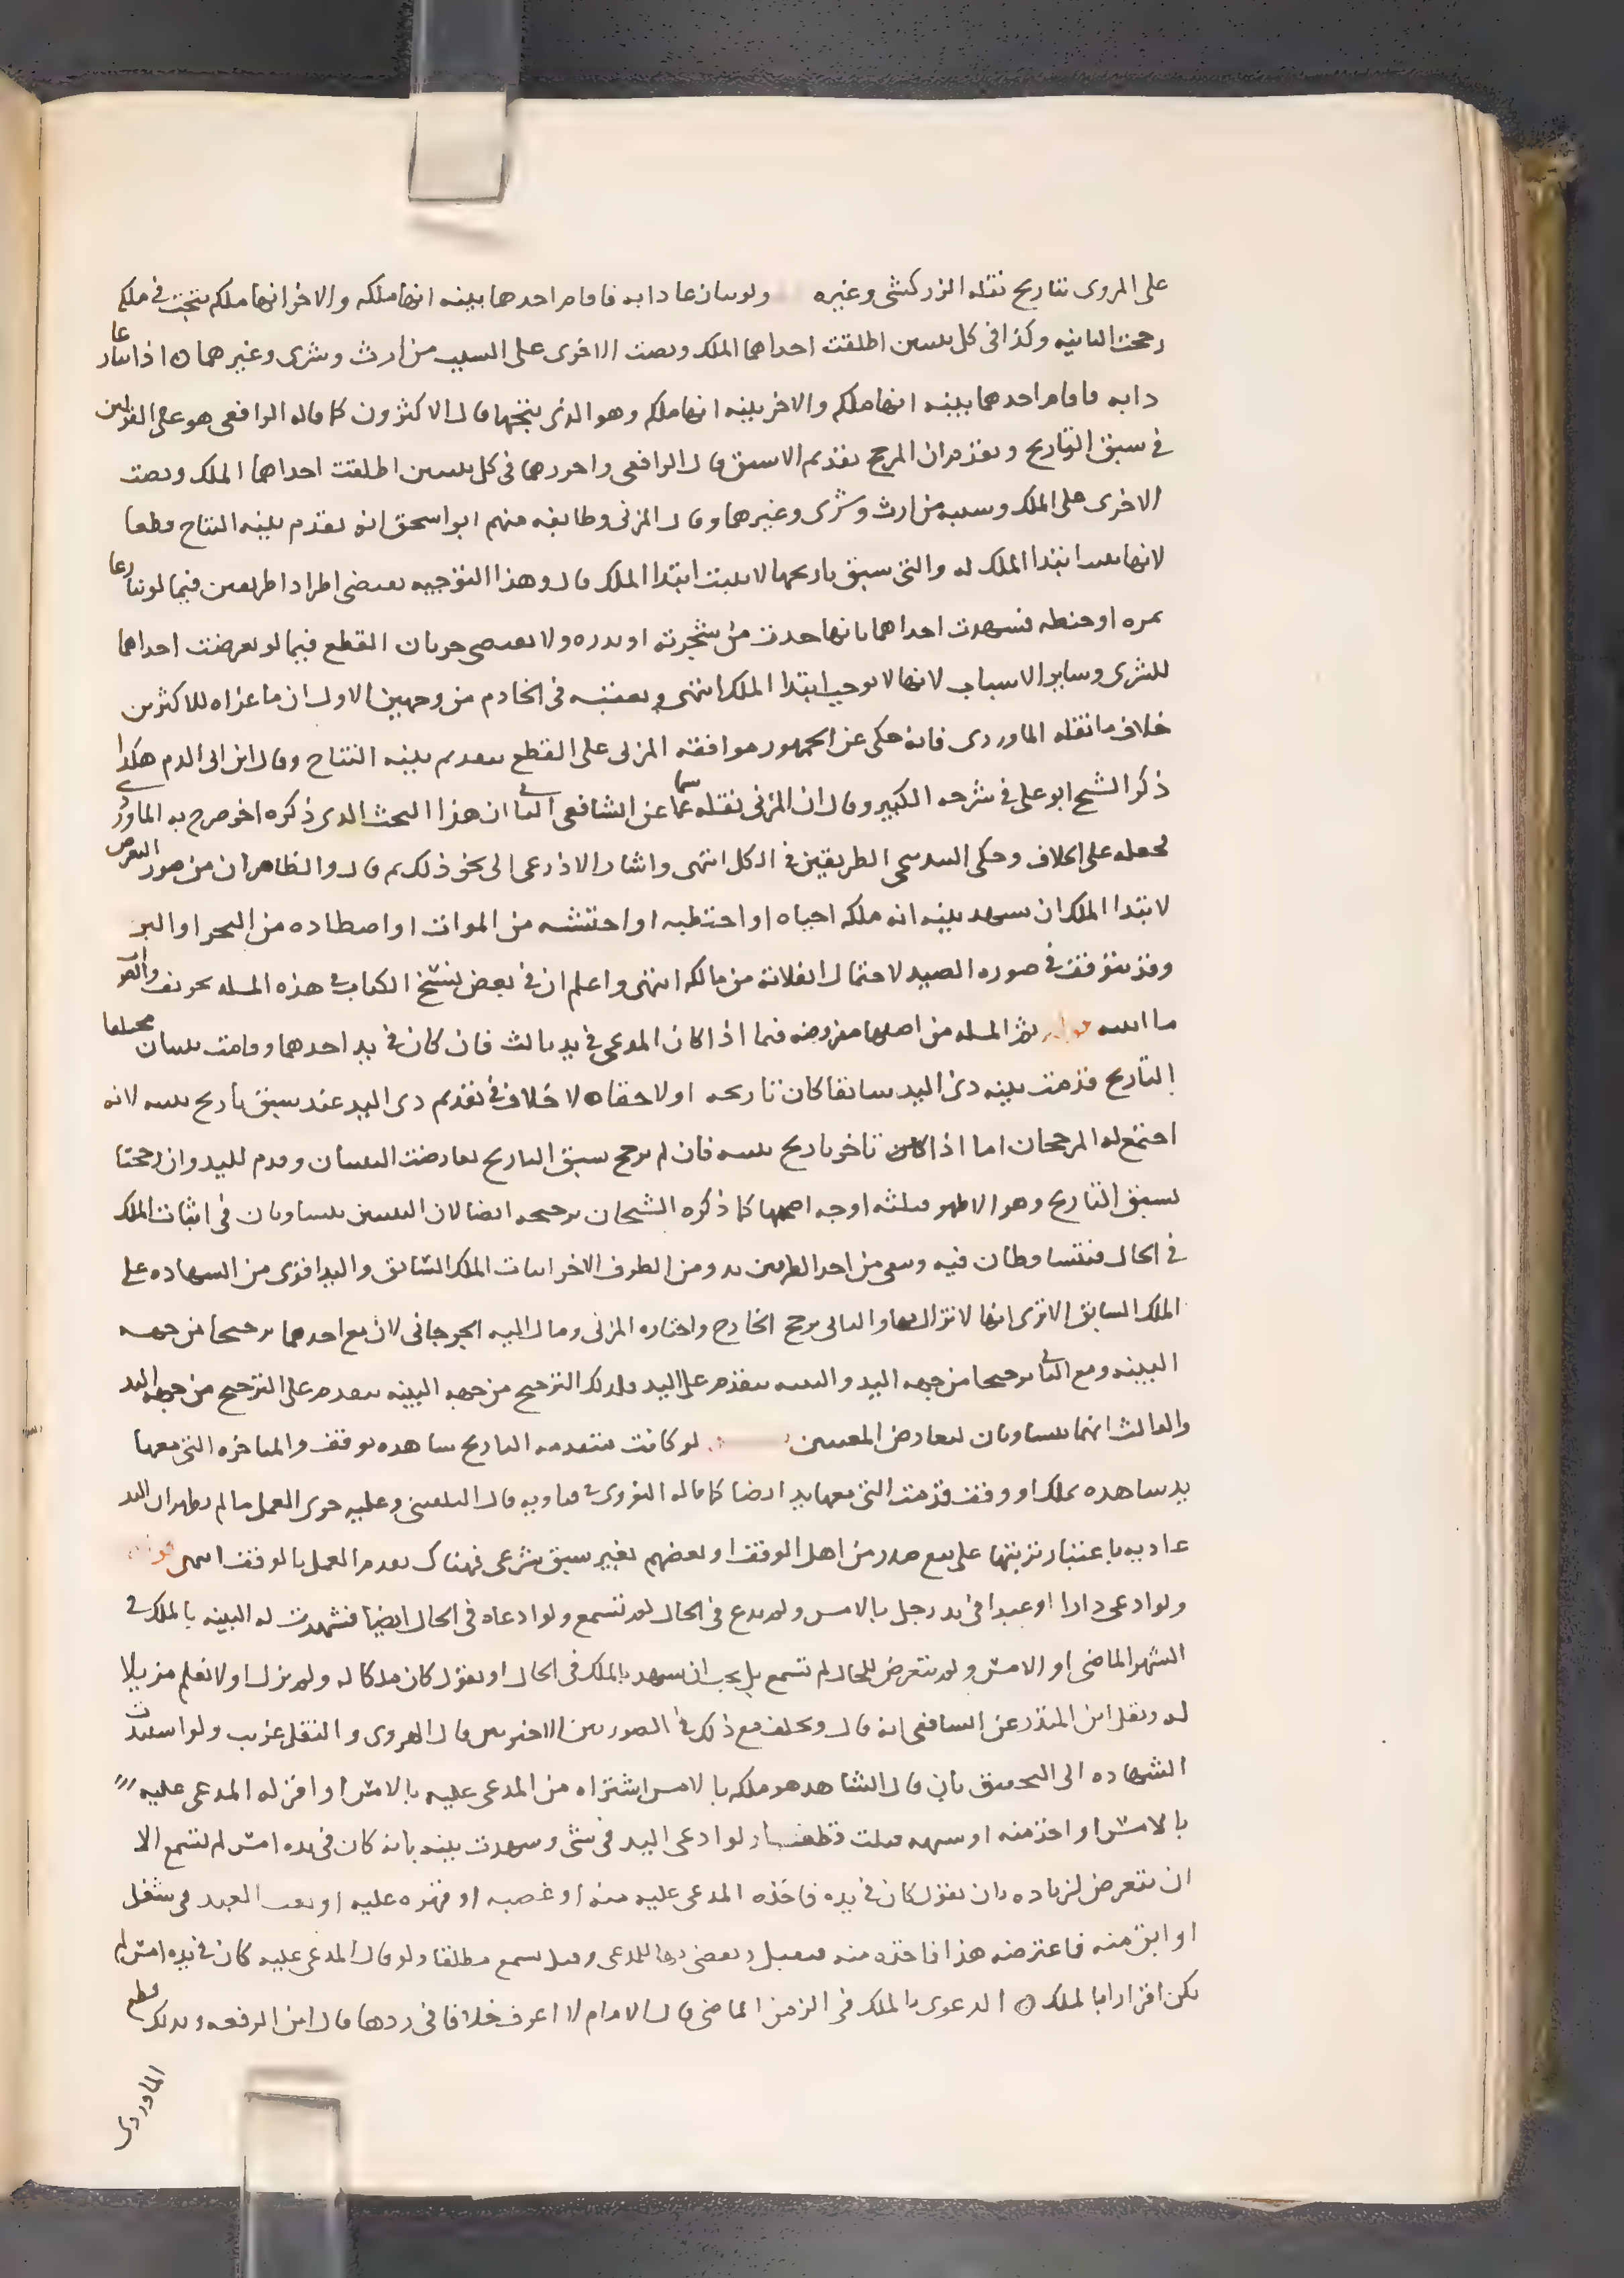 على المروى بتاريخ نقله الزركشى وغيره ولو تنازعا دابه فاقام احدهما بينه انها ملكه والاخر انها ملكه نتجت فى ملكه
رجحت الثانيه وكذا فى كل بينتين اطلقت احداهما الملك ونصت الاخرى على السبب من ارث وشرى وغيرهما ه اذا تنازعا
دابه فاقام احدهما بينه انها ملكه والاخر بينه انها ملكه وهو الذى نتجها قال الاكثرون كما قاله الرافعى هو على القولين
فى سبق التاريخ وتقدم ان المرجح تقديم الاسبق قال الرافعى واجروهما فى كل بينتين اطلقت احداهما الملك ونصت
الاخرى على الملك وسببه من ارث وشرى وغيرهما وقال المزنى وطايفه منهم ابو اسحق انه تقدم بينه النتاج قطعا
لانها تثبت ابتدا الملك له والتى سبق تاريخها لا تثبت ابتدا الملك قال وهذا التوجيه يقتضى اطراد الطريقين فيما لو تنازعا
ثمره او حنطه فشهدت احداهما بانها حدثت من شجرته او بذره ولا يقتضى جريان القطع فيما لو تعرضت احداهما
للشرى وساير الاسباب لانها لا توجب ابتدا الملك انتهى وتعقبه فى الخادم من وجهين الاول ان ما عزاه للاكثرين
خلاف ما نقله الماوردى فانه حكى عن الجمهور موافقه المزنى على القطع بتقديم بينه النتاج وقال ابن ابى الدم هكذا
ذكر الشيخ ابو على فى شرحه الكبير وقال ان المزنى نقله سماعا عن الشافعى الثانى ان هذا البحث الذى ذكره اخر صرح به الماوردى
فجعله على الخلاف وحكى الطريقين فى الكل انتهى واشار الاذرعى الى نحو ذلك ثم قال والظاهر ان من صور التعرض
لابتدا الملك ان تشهد بينه انه ملكه احياه او احتطبه او احتشه من الموات او اصطاده من البحر او البر
وقد يتوقف فى صوره الصيد لاحتمال انفلاته من مالكه انتهى واعلم ان فى بعض نسخ الكتاب فى هذه المسله تحريف والصواب
ما اثبته ثم المسله من اصلها مفروضه فيما اذا كان المدعى فى يد ثالث فان كان فى يد احدهما وقامت بينتان مختلفا
التاريخ قدمت بينه ذى اليد سابقا كان تاريخه او لاحقا ه لا خلاف فى تقديم ذى اليد عند سبق تاريخ بينته لانه
اجتمع له المرجحان اما اذا كان تاخر تاريخ بينته فان لم نرجح بسبق التاريخ تعارضت البينتان وقدم لليد وان رجحنا
بسبق التاريخ وهو الاظهر فثلثه اوجه اصحها كما ذكره الشيخان ترجيحه ايضا لان البينتين متساويتان فى اثبات الملك
فى الحال فتتساقطان فيه وبقى من احد الطرفين يد ومن الطرف الاخر اثبات الملك السابق واليد اقوى من الشهاده على
الملك السابق الا ترى انها لا تزال بها والثانى نرجح الخارج واختاره المزنى ومال اليه الجرجانى لان مع احدهما ترجيحا من جهه
البينه ومع الثانى ترجيحا من جهه اليد والبينه تتقدم على اليد وكذلك الترجيح من جهه البينه يتقدم على الترجيح من جهه اليد
والثالث انهما متساويان لتعارض المعنيين لو كانت متقدمه التاريخ شاهده بوقف والمتاخره التى معها
يد شاهده بملك او وقف قدمت التى معها يد ايضا كما قاله النووى فى فتاويه قال البلقينى وعليه جرى العمل ما لم يظهر ان اليد
عاديه باعتبار ترتبها على بيع صدر من اهل الوقف او بعضهم بغير سبق شرعى فهناك يقدم العمل بالوقف انتهى
ولو ادعى دارا او عبدا فى يد رجل بالامس ولم يدع فى الحال لم تسمع ولو ادعاه فى الحال ايضا فشهدت له البينه بالملك فى
الشهر الماضى او الامس ولم تتعرض للحال لم تسمع بل يجب ان تشهد بالملك فى الحال او يقول كان ملكا له ولم يزل او لا نعلم مزيلا
له ونقل ابن المنذر عن الشافعى انه قال ويحلف مع ذلك فى الصورتين الاخيرتين قال الهروى والنقل غريب ولو استندت
الشهاده الى التحقيق بان قال الشاهد هو ملكه بالامس اشتراه من المدعى عليه بالامس او اقر له المدعى عليه
بالامس او اخذ منه او سهمه قبلت قطعا ولو ادعى اليد فى شى وشهدت بينه بانه كان فى يده امس لم تسمع الا
ان يتعرض لزياده بان تقول كان فى يده فاخذه المدعى عليه منه او غصبه او قهره عليه او بعث العبد فى شغل
او ابق منه فاعترضه هذا فاخذه منه فتقبل ويقضى بها للمدعى وقيل تسمع مطلقا ولو قال المدعى عليه كان فى يده امس لم
يكن اقرارا بالملك ه الدعوى بالملك فى الزمن الماضى قال الامام لا اعرف خلافا فى ردها قال ابن الرفعه وبذلك قطع
الماوردى